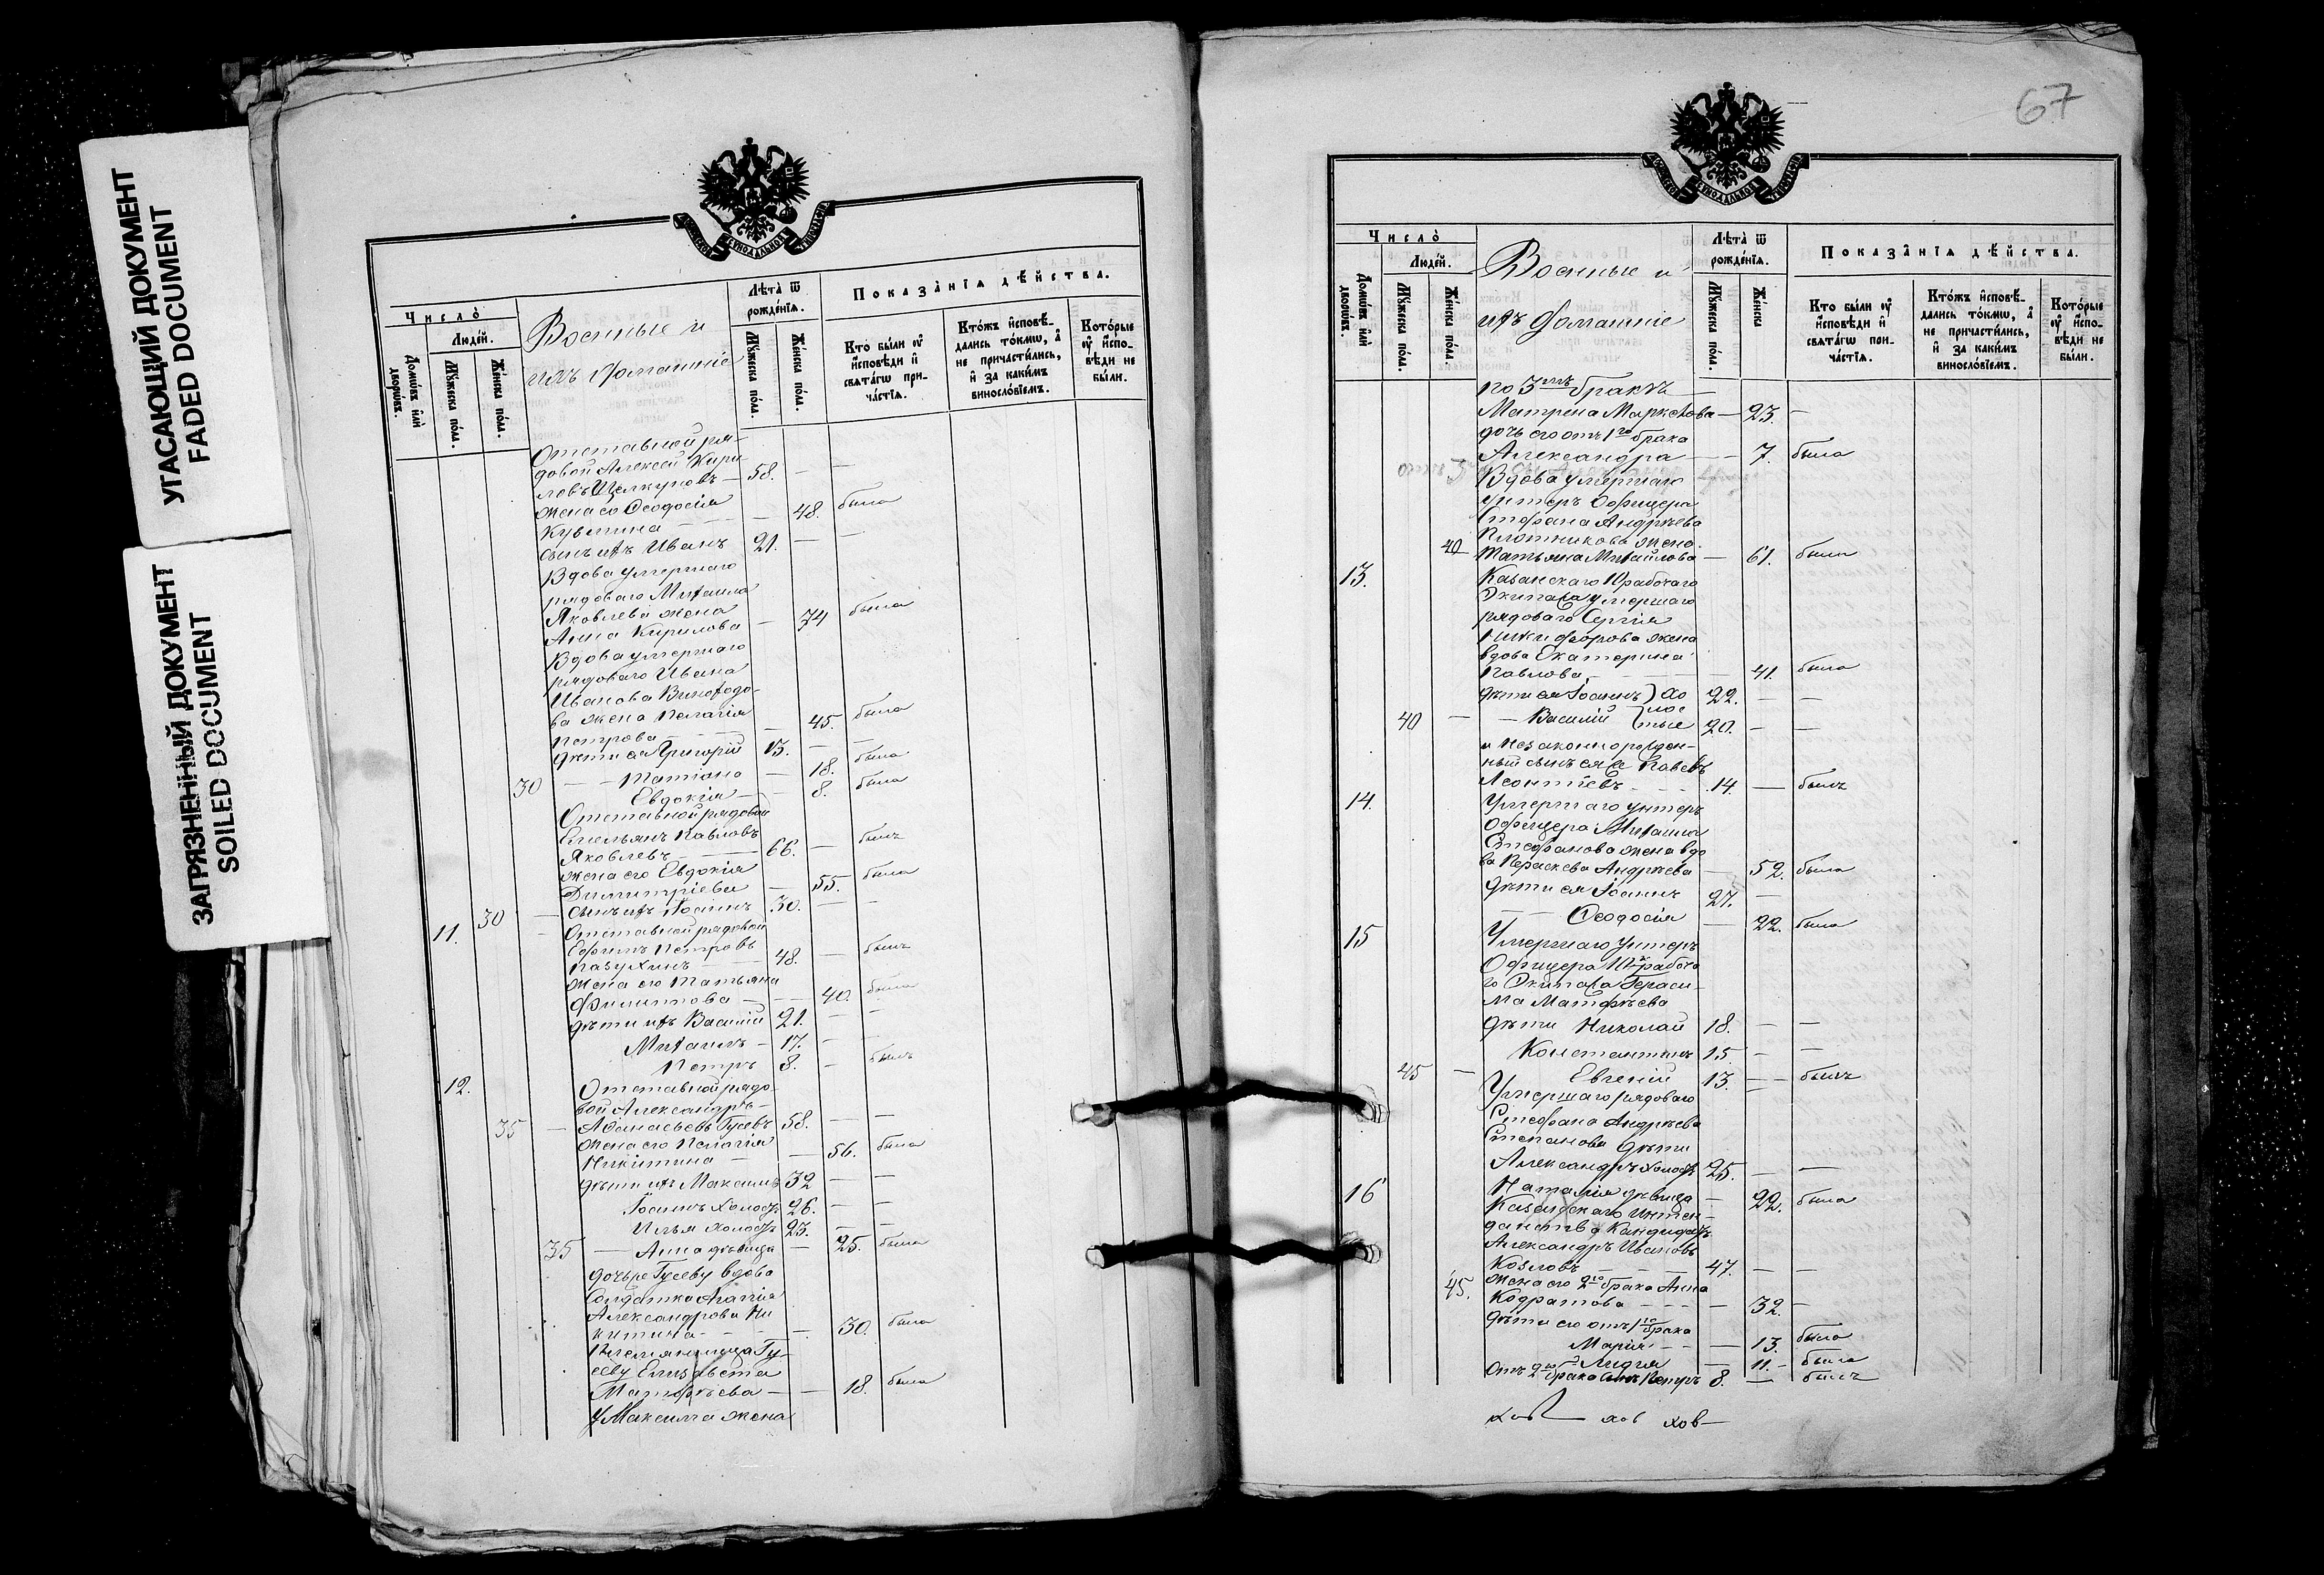 УГАСАЮЩИЙ ДОКУМЕНТ
FADED DOCUMENT
ЗАГРЯЗНЕННЫЙ ДОКУМЕНТ
SOILED DOCUMENT
Число̀
Людей.
Домѡвъ или дворѡвъ.
Мꙋжеска пола.
Женска пола.
Военные и
ихъ домашніе
Лѣта̀ ѿ рожденїѧ.
Мꙋжеска пола.
Женска пола.
Показанїѧ дѣйства.
Кто были оу исповѣди и свѧтагѡ причастїѧ.
Ктожъ исповѣдались токмѡ, а не причастились, и за какимъ винословїемъ.
Которые оу исповѣди не были.
Отставной ря-
довой Алексей Кири-
ловъ Щелкуновъ — 58. — —
жена его Феодосія
Кузмина — 48. была
сынъ ихъ Иванъ 21. — —
Вдова умершаго
рядоваго Михаила
Яковлева жена
Анна Кирилова — 74 была
Вдова умершаго
рядоваго Ивана
Иванова Виноходо-
ва жена Пелагія
Петрова — 45. была
дѣти ея Григорій 15. — —
— Татіана — 18. была
30 Евдокія — 8. была
Отставной рядовой
Емельянъ Павловъ
Яковлевъ — 66. — былъ
жена его Евдокія
Димитріева — 55. была
30 — сынъ ихъ Іоаннъ 30. — —
11. Отставной рядовой
Ефимъ Петровъ
Пазухинъ — 48. — былъ
жена его Татьяна
Филипова — 40. была
дѣти ихъ Василій 21. — —
Михаилъ — 17. — —
Петръ 8. — былъ
12. Отставной рядо-
вой Александръ
35 — Афанасьевъ Гусевъ 58. — —
жена его Пелагія
Никитина — 56. была
дѣти ихъ Максимъ 32 — —
Іоаннъ холост 26. — —
Илья холост 23. — —
35 — Анна дѣвица — 25. была
дочь Гусеву вдова
Солдатка Агапія
Александрова Ни
китина — 30. была
Племянница Гу-
севу Елизавета
Матфѣева — 18. была
У Максима жена
67
Число̀
Людей.
Домѡвъ или дворѡвъ.
Мꙋжеска пола.
Женска пола.
Военные и
ихъ домашніе
Лѣта̀ ѿ рожденїѧ.
Мꙋжеска пола.
Женска
Показанїѧ дѣйства.
Кто были оу исповѣди и свѧтагѡ причастїѧ.
Ктожъ исповѣдались токмѡ, а не причастились, и за какимъ винословїемъ.
Которые оу исповѣди не были.
по 3мъ бракѣ
Матрена Маркелова — 23. —
дочь его отъ 1го брака
Александра — 7. была
Вдова умершаго
Унтеръ Офицера
Стефана Андрѣева
Плотникова жена
40 Татьяна Михайлова — 61. была
13. Казанскаго Юрабочаго
Экипажа умершаго
рядоваго Сергія
Никифорова жена
вдова Екатерина
Павлова — 41. была
дѣти ея Іоаннъ } хо 22. — —
40 — Василій } лостые 20. — —
и незаконнорожден-
ный сынъ ея Павелъ
Леонтіевъ — 14. — былъ
14. Умершаго унтеръ
Офицера Михаила
Стефанова жена вдо
ва Параскева Андрѣева — 52. была
дѣти ея Іоаннъ 27. —
Феодосія — 22. была
15 Умершаго Унтеръ
Офицера 10й рабоча
го Экипажа Гераси
ма Матфѣева
дѣти Николай 18. — —
Константинъ 15. — —
45 — Евгеній 13. — былъ
Умершаго рядоваго
Стефана Андрѣева
Степанова дѣти
Александръ холост 25. — —
Наталія дѣвица — 22. была
16 Казанскаго Интен-
данства Кандидатъ
Александръ Ивановъ
Козловъ — 47. — —
45. Жена его 2го брака Анна
Кодратова — 32. —
дѣти его отъ 1го брака
Марія — 13. была
Лидія — 11. — была
Отъ 2го брака сынъ Петръ 8. — былъ